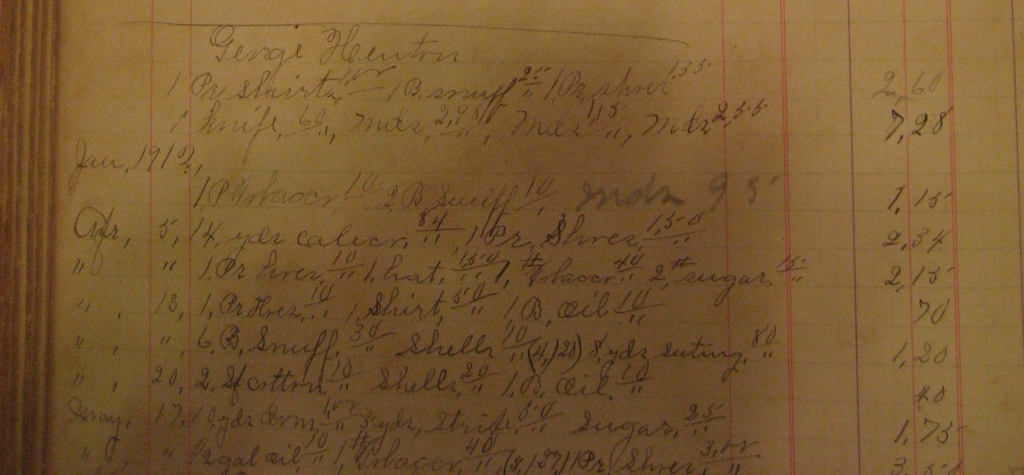 George Henton
1 Pr, Shirts, 1.00 1 B. Snuff 25 " 1 Pr, shoes 1.35 2,60
1 Knife, 60 ", Mdz, 2,98 ", Mdz 1,15 ", Mdz 2,55 7,28
Jan, 1912,
1 P Tobacco, 10 2 B Snuff, 10, Mdz 95 1,15
Apr, 5, 14, yds calico, 84 " 1 Pr, Shoes, 1,50 " 2,34
" " 1 Pr hoes, 10 " 1 hat, 1.50 " 1, # Tobacco 40 " 2, # sugar. 15 " 2,15
" , 13, 1, Pr Hoes, 10 " 1 Shirt, 50 " 1 B, Oil 10 " 70
" , ", 6, B, Snuff, 30 " Shells 10 " (4,)(28) 8 yds suting, 80 " 1,20
" , 20, 2, Sp cotton, 10 " Shells, 20 " 1, B, Oil, 10 " 40
May, 17, 10, yds 1.00 5 yds, Stripe, 50 " Sugar, 25 " 1,75
" " 1/2 gal oil, 10 " 1, # Tobacco, 40 " (5,)(27) 1 Pr Shoes, 3,00 "